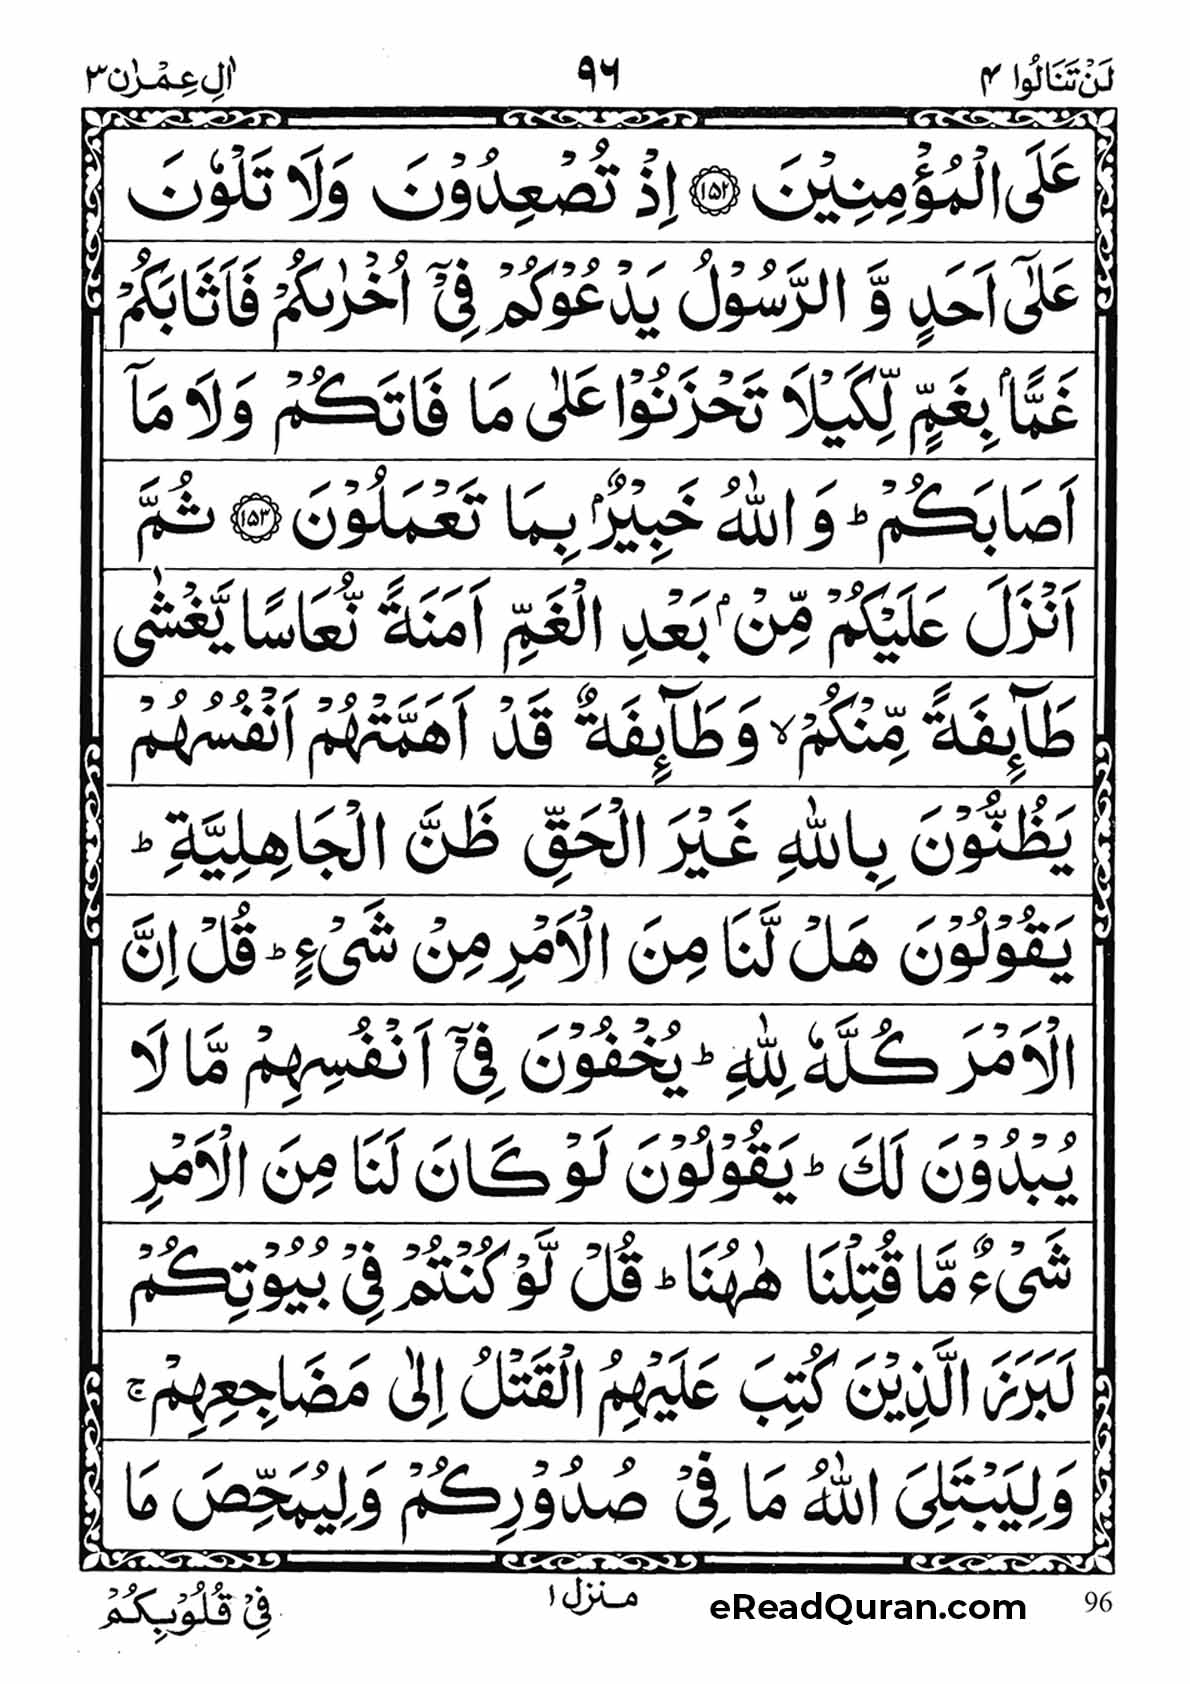 لَنْ تَنَالُوا ٤ ٩٦ اٰلِ عِمْرٰن ٣
عَلَى الْمُؤْمِنِيْنَ ۝١٥٢ اِذْ تُصْعِدُوْنَ وَلَا تَلْوٗنَ
عَلٰٓى اَحَدٍ وَّ الرَّسُوْلُ يَدْعُوْكُمْ فِيْٓ اُخْرٰىكُمْ فَاَثَابَكُمْ
غَمًّاۢ بِغَمٍّ لِّكَيْلَا تَحْزَنُوْا عَلٰى مَا فَاتَكُمْ وَلَا مَآ
اَصَابَكُمْ ؕ وَ اللّٰهُ خَبِيْرٌۢ بِمَا تَعْمَلُوْنَ ۝١٥٣ ثُمَّ
اَنْزَلَ عَلَيْكُمْ مِّنْۢ بَعْدِ الْغَمِّ اَمَنَةً نُّعَاسًا يَّغْشٰى
طَآىِٕفَةً مِّنْكُمْ ۙ وَطَآىِٕفَةٌ قَدْ اَهَمَّتْهُمْ اَنْفُسُهُمْ
يَظُنُّوْنَ بِاللّٰهِ غَيْرَ الْحَقِّ ظَنَّ الْجَاهِلِيَّةِ ؕ
يَقُوْلُوْنَ هَلْ لَّنَا مِنَ الْاَمْرِ مِنْ شَيْءٍ ؕ قُلْ اِنَّ
الْاَمْرَ كُلَّهٗ لِلّٰهِ ؕ يُخْفُوْنَ فِيْٓ اَنْفُسِهِمْ مَّا لَا
يُبْدُوْنَ لَكَ ؕ يَقُوْلُوْنَ لَوْ كَانَ لَنَا مِنَ الْاَمْرِ
شَيْءٌ مَّا قُتِلْنَا هٰهُنَا ؕ قُلْ لَّوْ كُنْتُمْ فِيْ بُيُوْتِكُمْ
لَبَرَزَ الَّذِيْنَ كُتِبَ عَلَيْهِمُ الْقَتْلُ اِلٰى مَضَاجِعِهِمْ ۚ
وَلِيَبْتَلِيَ اللّٰهُ مَا فِيْ صُدُوْرِكُمْ وَلِيُمَحِّصَ مَا
فِيْ قُلُوْبِكُمْ
منزل ١
eReadQuran.com
96